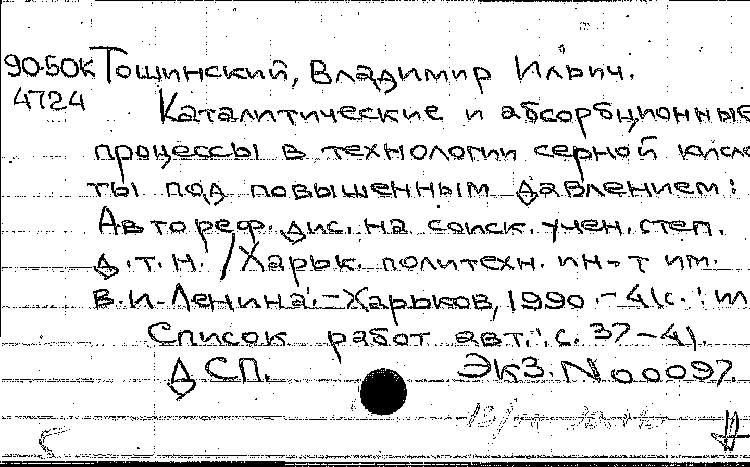 90-50к Тошинский, Владимир Ильич.
4724 Каталитические и абсорбционные
процессы в технологии серной кисло
ты под повышенным давлением:
Автореф. дис. на соиск. учен. степ.
д. т. н. / Харьк. политехн. ин-т им.
В.И. Ленина. - Харьков, 1990. - 41с.: ил
Список работ авт.: с. 37-41.
ДСП. Экз. N 00097.